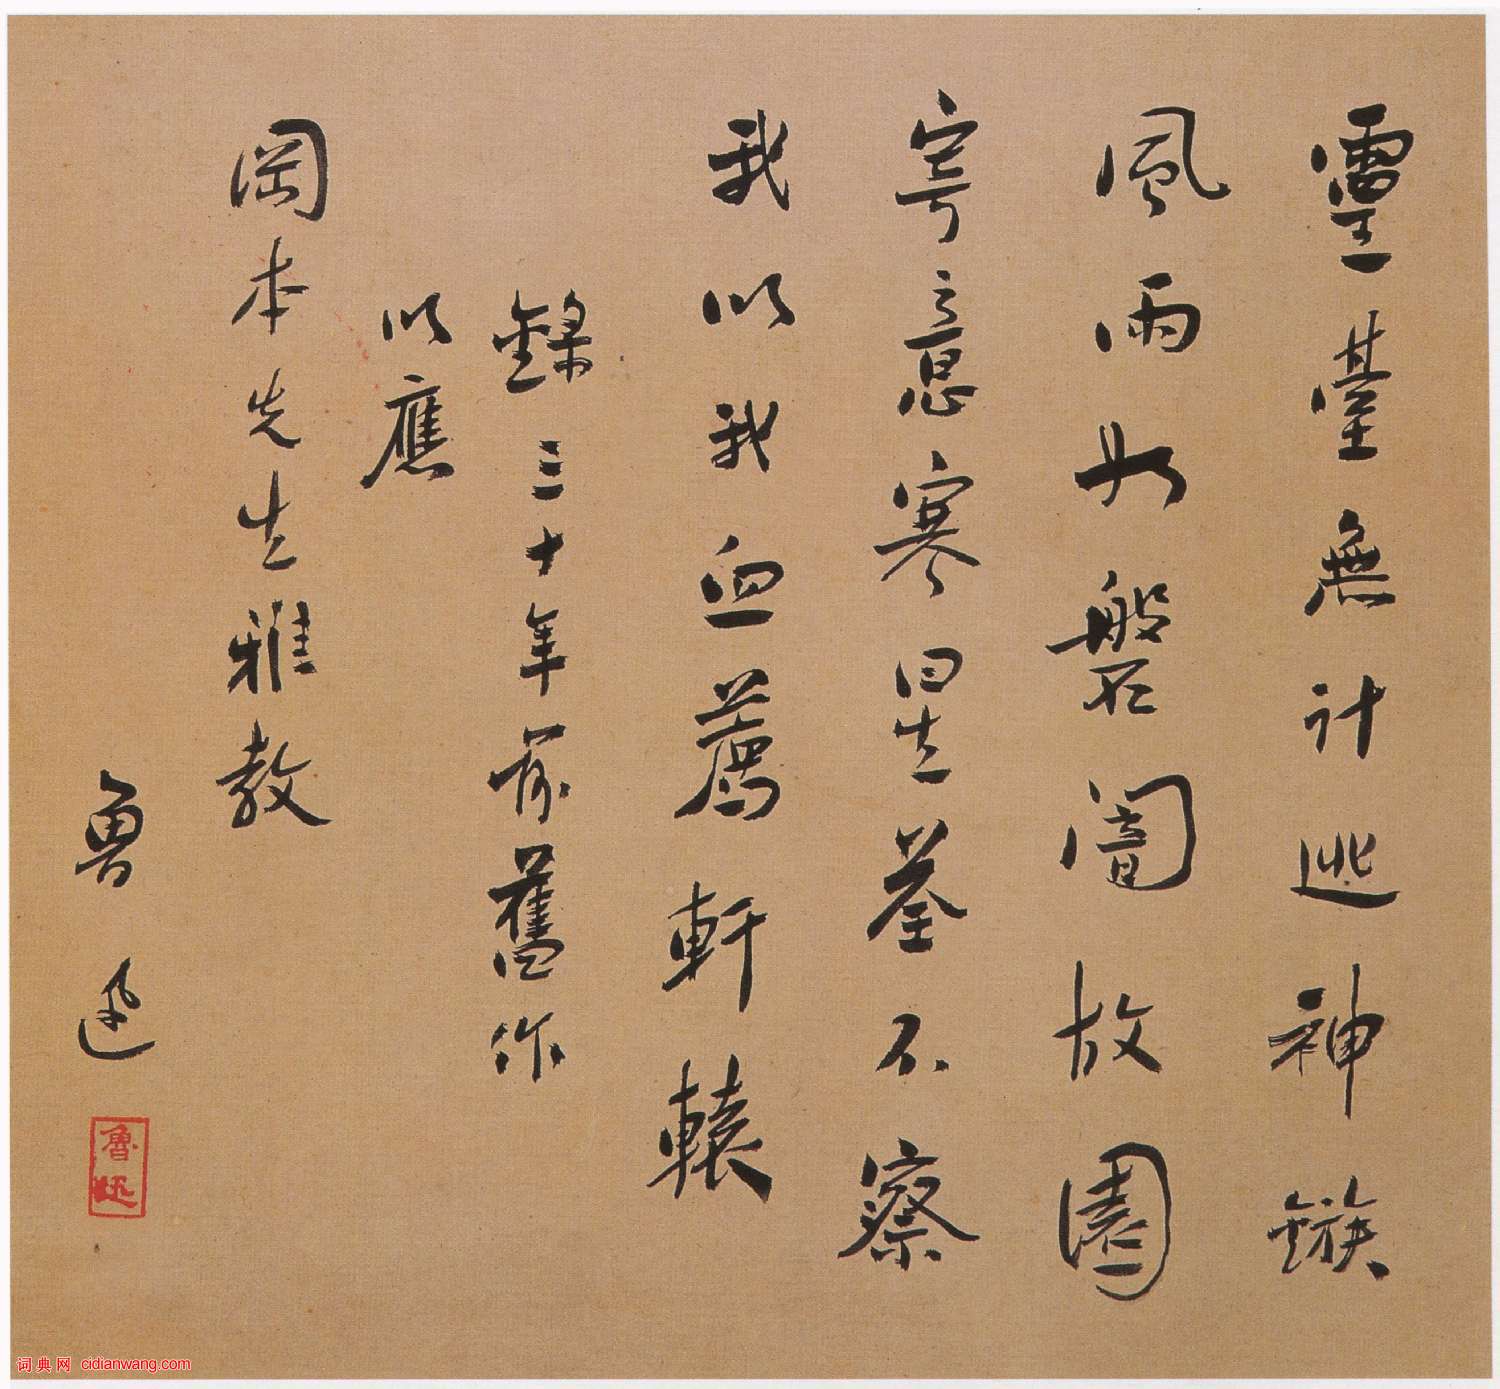 靈臺無計逃神鏃
風雨如磐闇故園
寄意寒星荃不察
我以我血薦軒轅
錄三十年前舊作
以應
岡本先生雅教
魯迅
魯迅
词典网 cidianwang.com